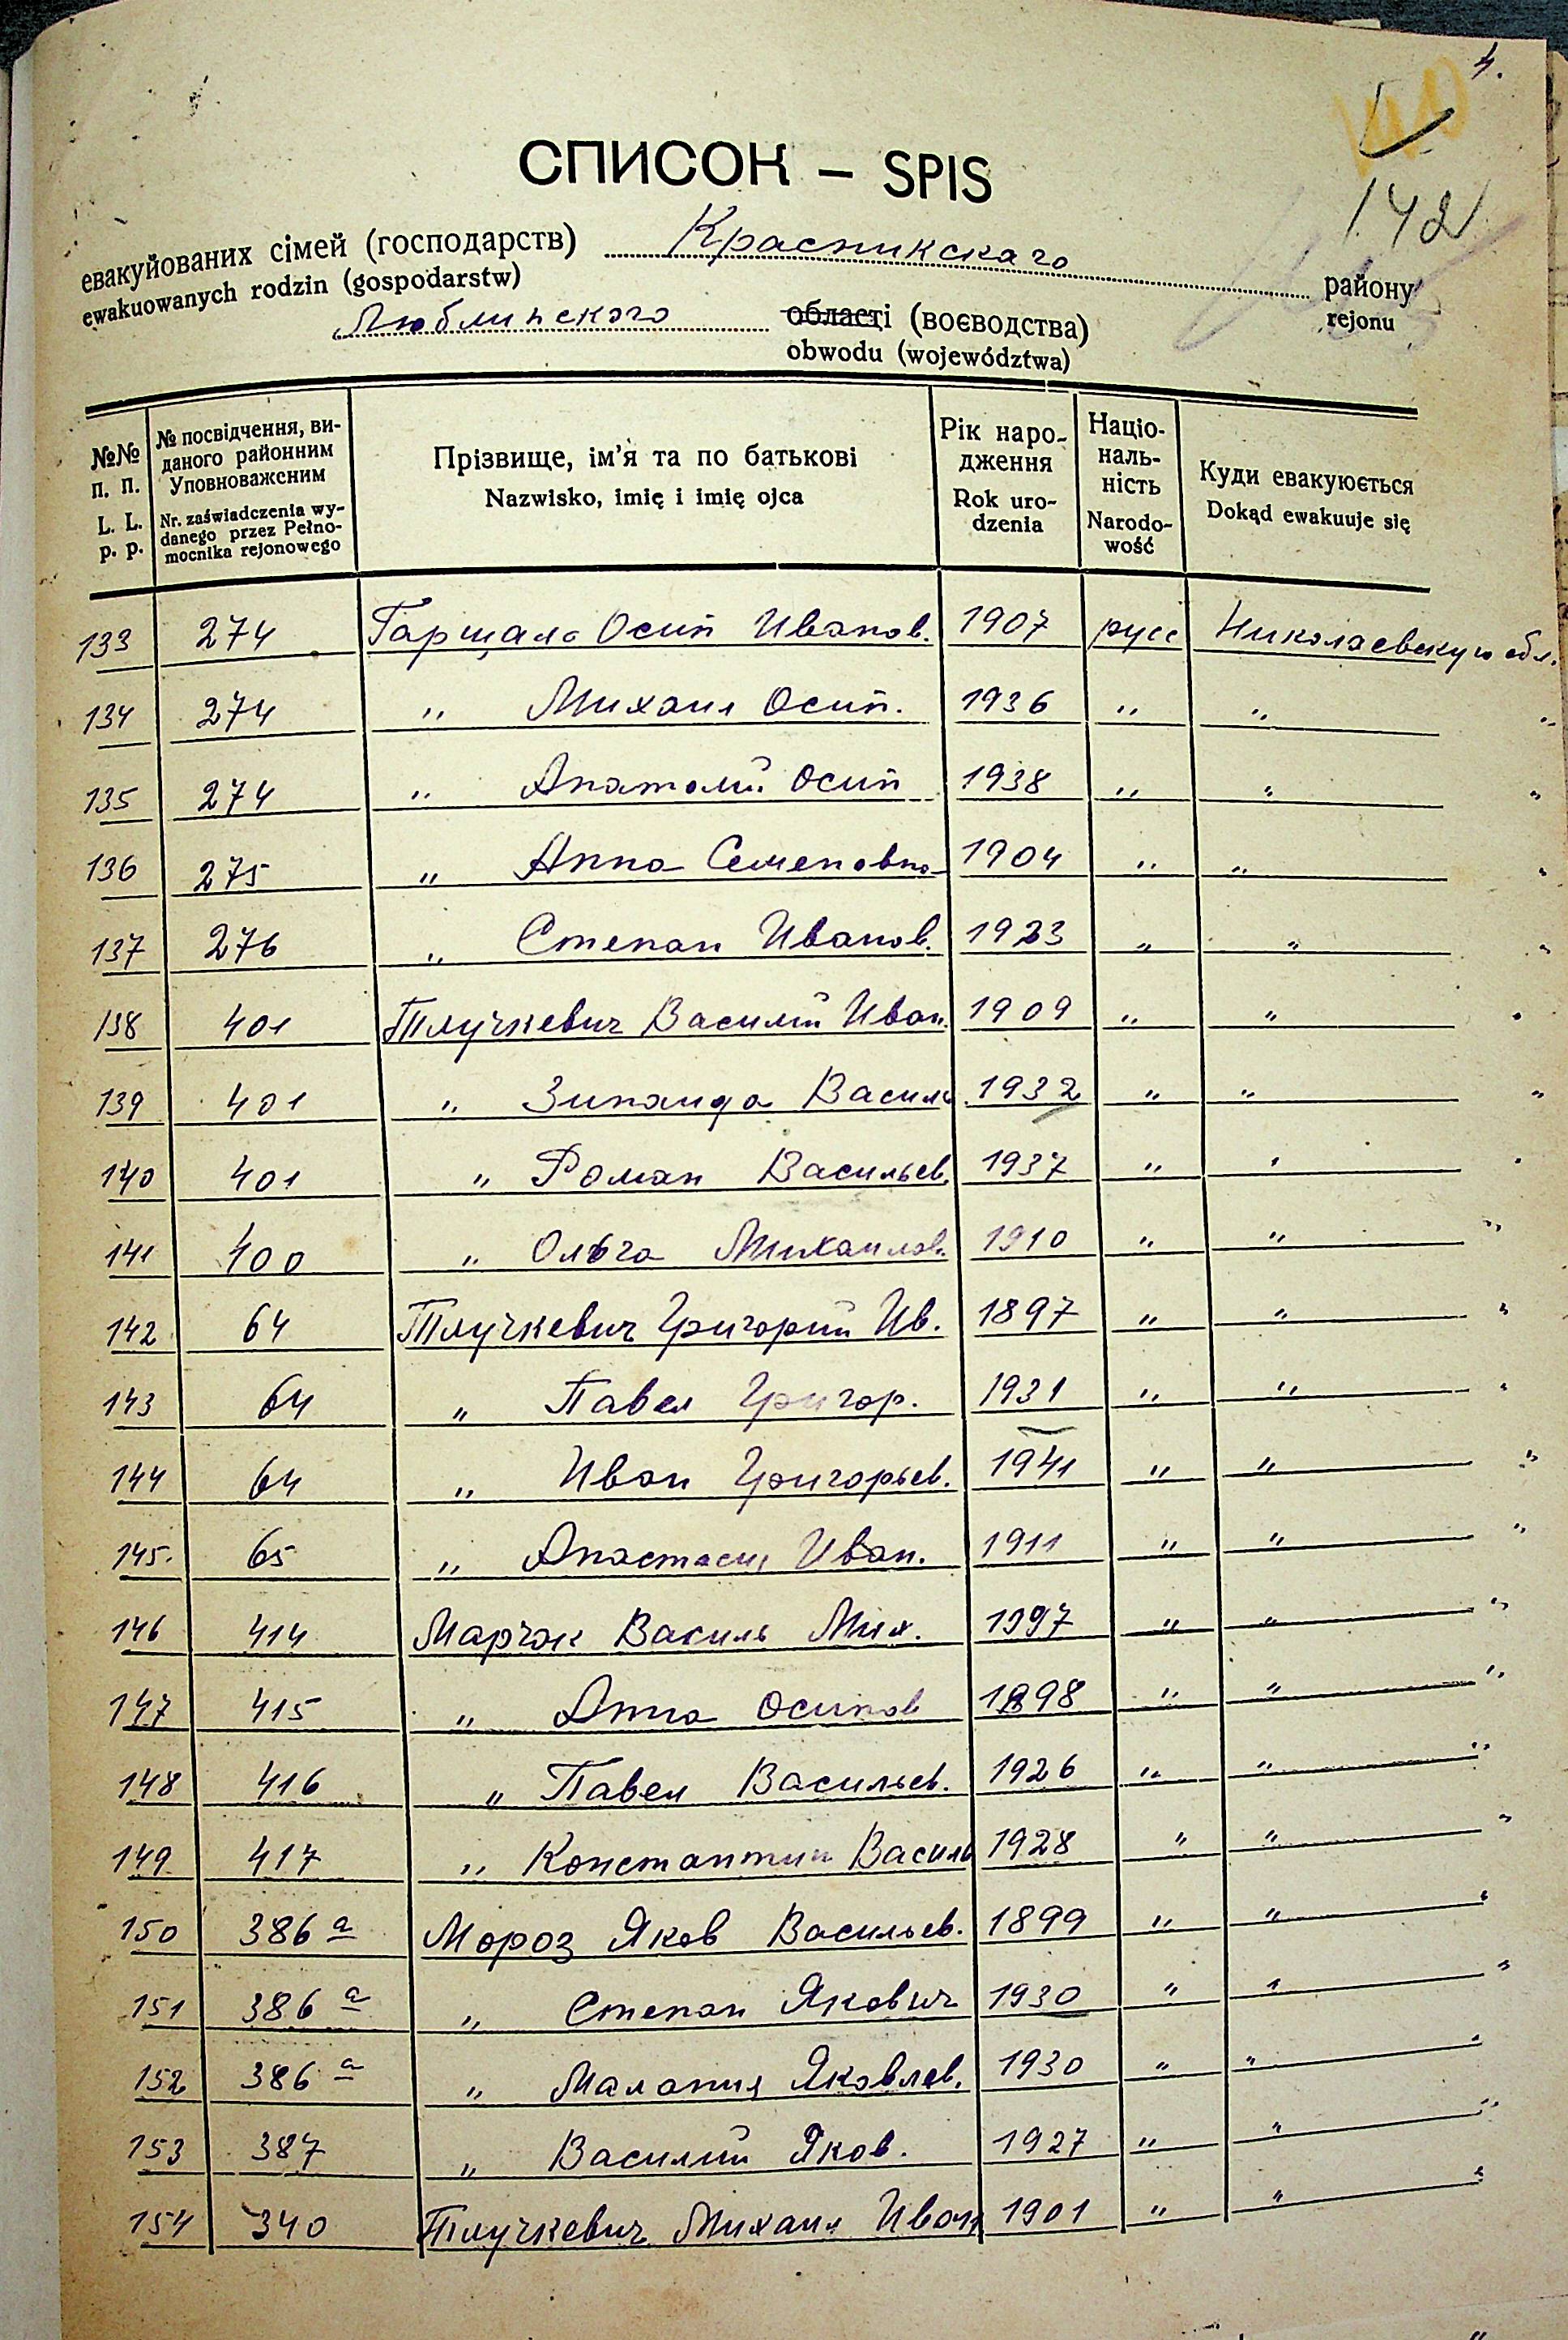 4.
142
СПИСОК – SPIS
евакуйованих сімей (господарств) Красникскаго району
ewakuowanych rodzin (gospodarstw) rejonu
Люблинскаго області (воєводства)
obwodu (województwa)
№№ п. п. L. L. p. p. | № посвідчення, ви- даного районним Уповноваженим Nr. zaświadczenia wy- danego przez Pełno- mocnika rejonowego | Прізвище, ім'я та по батькові Nazwisko, imię i imię ojca | Рік наро- дження Rok uro- dzenia | Націо- наль- ність Narodo- wość | Куди евакуюється Dokąd ewakuuje się
133 274 Гарщала Осип Иванов. 1907 русс Николаевскую обл.
134 274 " Михаил Осип. 1936 " " "
135 274 " Анатолий Осип 1938 " " "
136 275 " Анна Семеновна 1904 " " "
137 276 " Степан Иванов. 1923 " " "
138 401 Тлучкевич Василий Иван. 1909 " " "
139 401 " Зинаида Василь 1932 " " "
140 401 " Роман Васильев. 1937 " " "
141 400 " Ольга Михаилов. 1910 " " "
142 64 Тлучкевич Григорий Ив. 1897 " " "
143 64 " Павел Григор. 1931 " " "
144 64 " Иван Григорьев. 1941 " " "
145. 65 " Анастасия Иван. 1911 " " "
146 414 Марчак Василь Мих. 1897 " " "
147 415 " Анна Осипов 1898 " " "
148 416 " Павел Васильев. 1926 " " "
149 417 " Константин Василь 1928 " " "
150 386 а Мороз Яков Васильев. 1899 " " "
151 386 а " Степан Якович 1930 " " "
152 386 а " Малания Яковлев. 1930 " " "
153 387 " Василий Яков. 1927 " " "
154 340 Тлучкевич Михаил Иван 1901 " " "